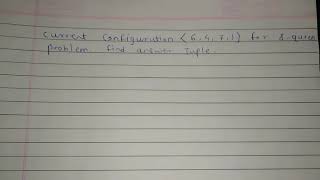 current configuration (6,4,7,1) for 8-queen
problem find answer Tuple.